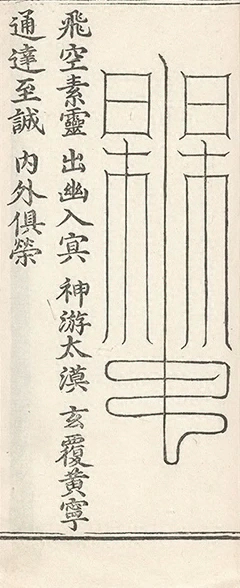 飛空素靈　出幽入冥　神游太漠　玄覆黃寧
通達至誠　內外俱榮